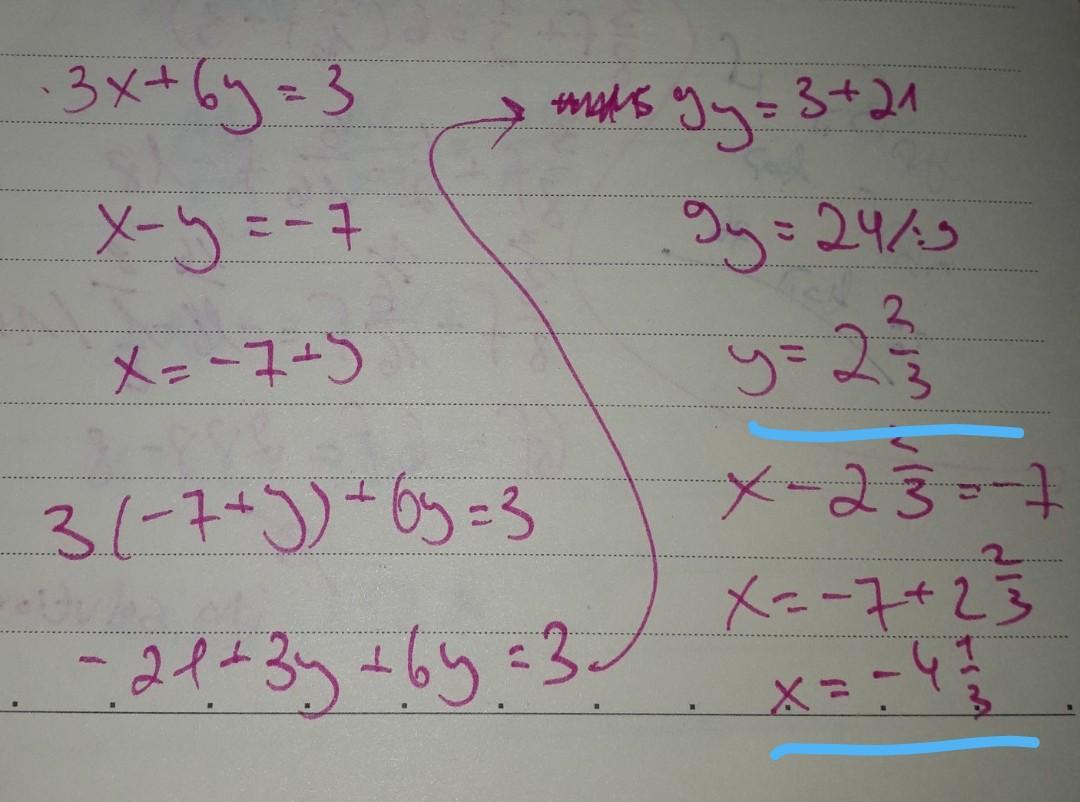 3x+6y=3
x-y=-7
x=-7+y
3(-7+y)+6y=3
-21+3y+6y=3
9y=3+21
9y=24/:9
y=2 2/3
x-2 2/3=-7
x=-7+2 2/3
x=-4 1/3